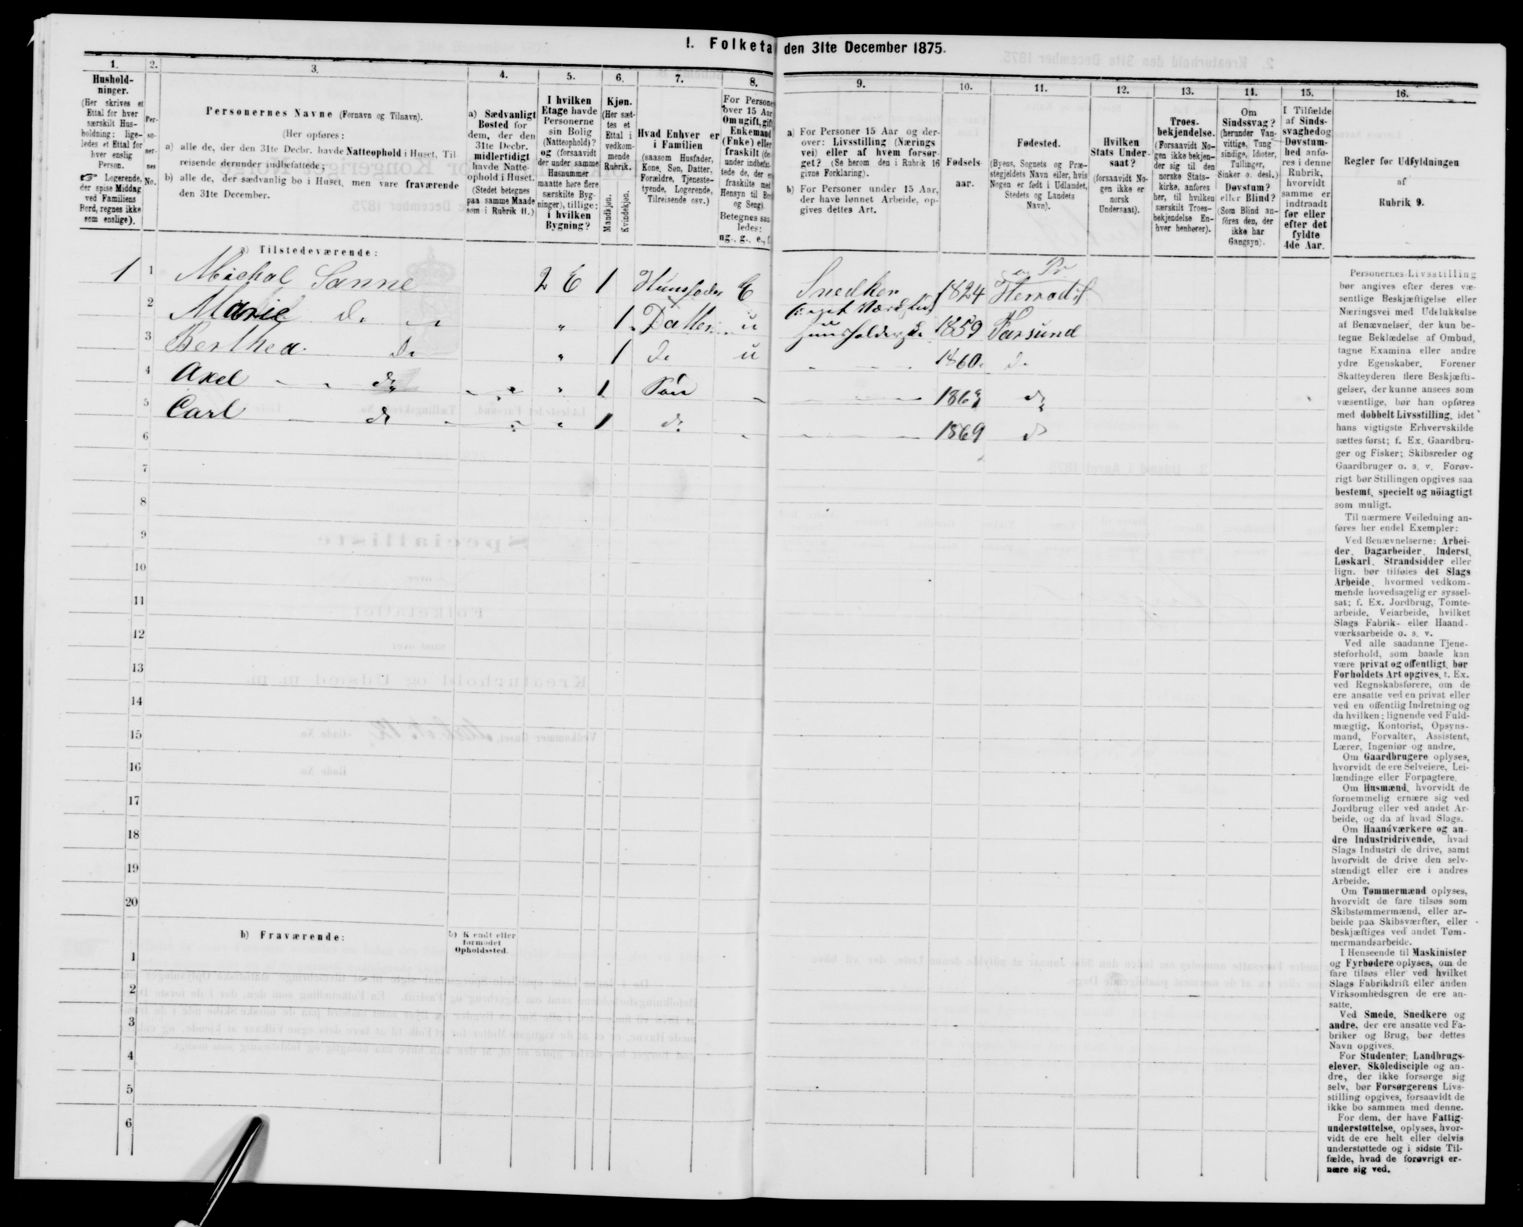 I. Folketa den 31te December 1875.
1. 2. 3. 4. 5. 6. 7. 8. 9. 10. 11. 12. 13. 14. 15. 16.
Hushold-
ninger.
(Her skrives et
Ettal for hver
særskilt Hus-
holdning; lige-
ledes et Ettal for
hver enslig
Person.
☞ Logerende,
der spise Middag
ved Familiens
Bord, regnes ikke
som enslige).
Per-
so-
ner-
nes
No.
Personernes Navne (Fornavn og Tilnavn).
(Her opføres:
a) alle de, der den 31te Decbr. havde Natteophold i Huset, Til
reisende derunder indbefattede;
b) alle de, der sædvanlig bo i Huset, men vare fraværende
den 31te December.
a) Sædvanligt
Bosted for
dem, der den
31te Decbr.
midlertidigt
havde Natte-
ophold i Huset.
(Stedet betegnes
paa samme Maade
som i Rubrik 11.)
I hvilken
Etage havde
Personerne
sin Bolig
(Natteophold)?
og (forsaavidt
der under samme
Husnummer
maatte høre flere
særskilte Byg-
ninger), tillige:
i hvilken
Bygning?
Kjøn.
(Her sæt-
tes et
Ettal i
vedkom-
mende
Rubrik.
Mandkjøn.
Kvindekjøn.
Hvad Enhver er
i Familien
(saasom Husfader,
Kone, Søn, Datter,
Forældre, Tjeneste-
tyende, Logerende,
Tilreisende osv.)
For Persone
over 15 Aar
Om ugift, gift
Enkemand
(Enke) eller
fraskilt (de
under indbefat-
tede de, der e
fraskilte med
Hensyn til Bo
og Seng).
Betegnes saa
ledes:
ug., g., e., f.
a) For Personer 15 Aar og der-
over: Livsstilling (Nærings
vei) eller af hvem forsør-
get? (Se herom den i Rubrik 16
givne Forklaring).
b) For Personer under 15 Aar,
der have lønnet Arbeide, op-
gives dettes Art.
Fødsels-
aar.
Fødested.
(Byens, Sognets og Præ-
stegjeldets Navn eller, hvis
Nogen er født i Udlandet,
Stedets og Landets
Navn).
Hvilken
Stats Under-
saat?
(forsaavidt No-
gen ikke er
norsk
Undersaat).
Troes-
bekjendelse.
(Forsaavidt No-
gen ikke bekjen-
der sig til den
norske Stats-
kirke, anføres
her, til hvilken
særskilt Troes-
bekjendelse En-
hver henhører).
Om
Sindssvag?
(herunder Van-
vittige, Tung
sindige, Idioter,
Tullinger,
Sinker o. desl.)
Døvstum?
eller Blind?
(Som Blind an-
føres den, der
ikke har
Gangsyn).
I Tilfælde
af Sinds-
svaghed og
Døvstum-
hed anfø-
res i denne
Rubrik,
hvorvidt
samme er
indtraadt
før eller
efter det
fyldte
4de Aar.
Regler for Udfyldningen
af
Rubrik 9.
a) Tilstedeværende:
1 1 Michal Sanne 2 E 1 Huusfader E Snedker 1824 Herred
2 Marie Do " 1 Datter u 1859 Farsund
3 Berthea Do " 1 do u 1860 do
4 Axel do " 1 Søn 1863 do
5 Carl do " 1 do 1869 do
6
7
8
9
10
11
12
13
14
15
16
17
18
19
20
b) Fraværende:
b) Kjendt eller
formodet
Opholdssted.
1
2
3
4
5
6
Personernes Livsstilling
bør angives efter deres væ-
sentlige Beskjæftigelse eller
Næringsvei med Udelukkelse
af Benævnelser, der kun be-
tegne Beklædelse af Ombud,
tagne Examina eller andre
ydre Egenskaber. Forener
Skatteyderen flere Beskjæfti-
gelser, der kunne ansees som
væsentlige, bør han opføres
med dobbelt Livsstilling, idet
hans vigtigste Erhvervskilde
sættes først; f. Ex. Gaardbru-
ger og Fisker; Skibsreder og
Gaardbruger o. s. v. Forøv-
rigt bør Stillingen opgives saa
bestemt, specielt og nøiagtigt
som muligt.
Til nærmere Veiledning an-
føres her endel Exempler:
Ved Benævnelserne: Arbei-
der, Dagarbeider, Inderst,
Løskarl, Strandsidder eller
lign. bør tilføies det Slags
Arbeide, hvormed vedkom-
mende hovedsagelig er syssel-
sat; f. Ex. Jordbrug, Tomte-
arbeide, Veiarbeide, hvilket
Slags Fabrik- eller Haand-
værksarbeide o. s. v.
Ved alle saadanne Tjene-
steforhold, som baade kan
være privat og offentligt, bør
Forholdets Art opgives, t. Ex.
ved Regnskabsførere, om de
ere ansatte ved en privat eller
ved en offentlig Indretning og
da hvilken; lignende ved Fuld-
mægtig, Kontorist, Opsyns-
mand, Forvalter, Assistent,
Lærer, Ingeniør og andre.
Om Gaardbrugere oplyses,
hvorvidt de ere Selveiere, Lei-
lændinge eller Forpagtere.
Om Husmænd, hvorvidt de
fornemmelig ernære sig ved
Jordbrug eller ved andet Ar-
beide, og da af hvad Slags.
Om Haandværkere og an-
dre Industridrivende, hvad
Slags Industri de drive, samt
hvorvidt de drive den selv-
stændigt eller ere i andres
Arbeide.
Om Tømmermænd oplyses,
hvorvidt de fare tilsøs som
Skibstømmermænd, eller ar-
beide paa Skibsværfter, eller
beskjæftiges ved andet Tøm-
mermandsarbeide.
I Henseende til Maskinister
og Fyrbødere oplyses, om de
fare tilsøs eller ved hvilket
Slags Fabrikdrift eller anden
Virksomhedsgren de ere an-
satte.
Ved Smede, Snedkere og
andre, der ere ansatte ved Fa-
briker og Brug, bør dettes
Navn opgives.
For Studenter, Landbrugs-
elever, Skoledisciple og an-
dre, der ikke forsørge sig
selv, bør Forsørgerens Livs-
stilling opgives, forsaavidt de
ikke bo sammen med denne.
For dem, der have Fattig-
understøttelse, oplyses, hvor-
vidt de ere helt eller delvis
understøttede og i sidste Til-
fælde, hvad de forøvrigt er-
nære sig ved.